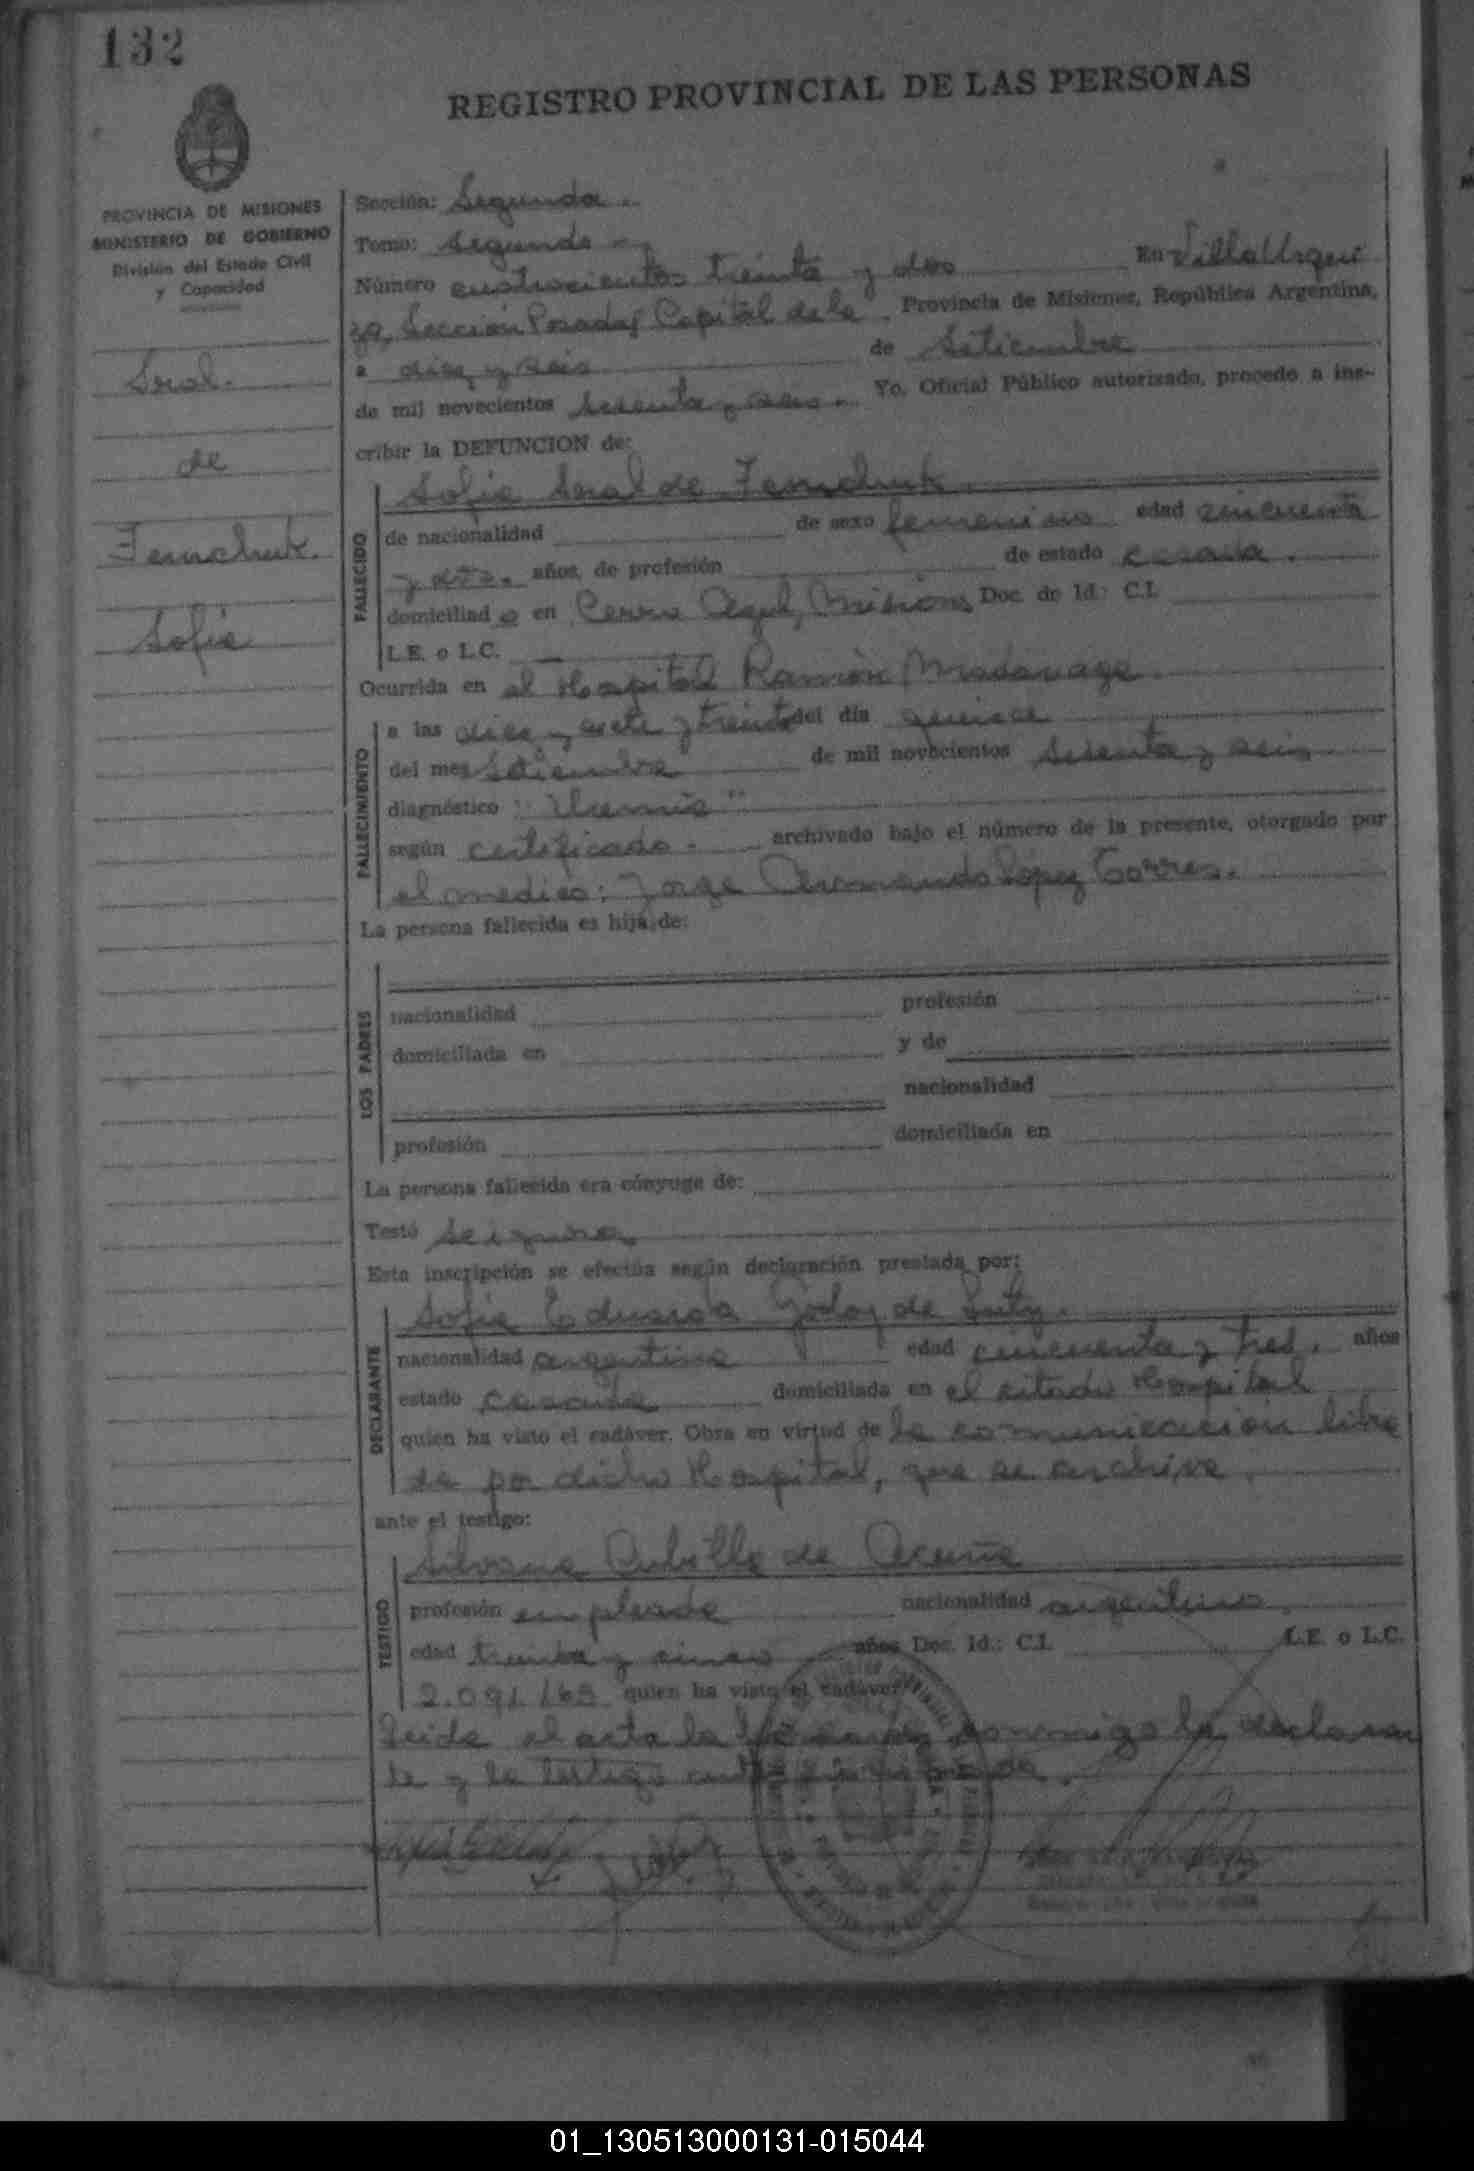 132
REGISTRO PROVINCIAL DE LAS PERSONAS
PROVINCIA DE MISIONES
MINISTERIO DE GOBIERNO
División del Estado Civil
y Capacidad
Sral.
de
Femchuk.
Sofia
Sección: Segunda.
Tomo: Segundo
Número cuatrocientos treinta y dos En Villa Urqui
za, Sección Posadas Capital de la Provincia de Misiones, República Argentina,
a diez y seis de Setiembre
de mil novecientos sesenta y seis. Yo, Oficial Público autorizado, procedo a ins-
cribir la DEFUNCION de:
FALLECIDO
Sofia Sral de Femchuk
de nacionalidad de sexo femenino edad cincuenta
y años, de profesión de estado casada.
domiciliad a en Cerro Azul, Misiones Doc. de Id.: C.I.
L.E. o L.C.
Ocurrida en el Hospital Ramón Madariaga
FALLECIMIENTO
a las diez y siete y treinta del día quince
del mes Setiembre de mil novecientos sesenta y seis
diagnóstico: "Uremia"
según certificado. archivado bajo el número de la presente, otorgado por
el medico: Jorge Armando López Torres.
La persona fallecida es hija de:
LOS PADRES
nacionalidad profesión
domiciliada en y de
nacionalidad
profesión domiciliada en
La persona fallecida era cónyuge de:
Testó se ignora
Esta inscripción se efectúa según declaración prestada por:
DECLARANTE
Sofia Eduarda Godoy de
nacionalidad argentina edad cincuenta y tres. años
estado casada domiciliada en el citado Hospital
quien ha visto el cadáver. Obra en virtud de la comunicación libra
da por dicho Hospital, que se archiva
ante el testigo:
TESTIGO
Silvana Cubilla de Acuña
profesión empleada nacionalidad argentina.
edad treinta y cinco años Doc. Id.: C.I. L.E. o L.C.
2.091.163 quien ha visto el cadáver
Leida el acta la conmigo la declaran
te y la testigo
01_130513000131-015044